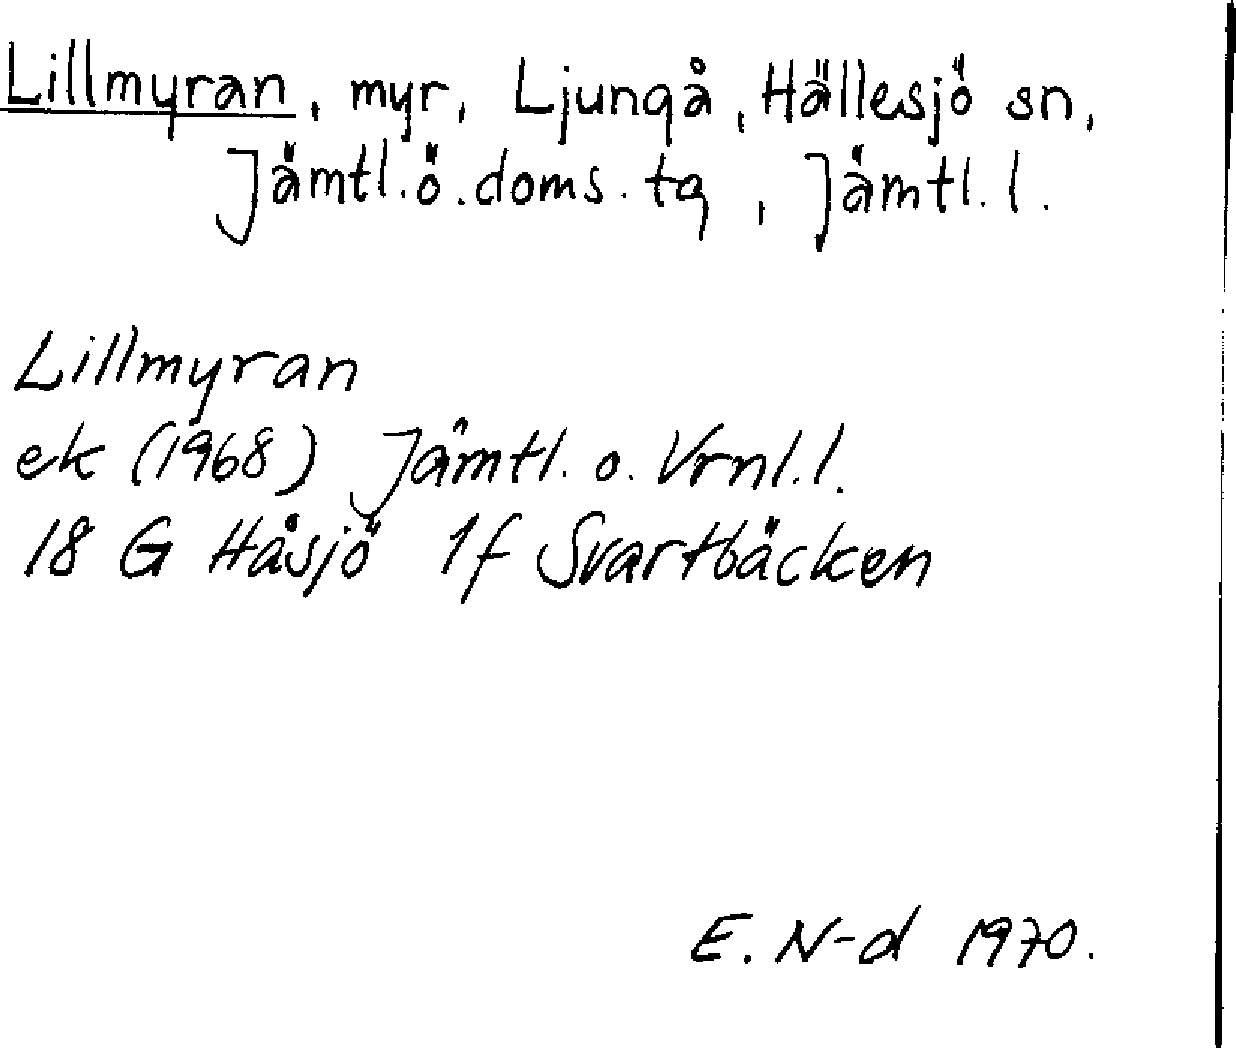 Lillmyran, myr, Ljungå, Hällesjö sn,
Jämtl.ö.doms.tg, Jämtl.l.
Lillmyran
ek (1968) Jämtl. o. Vrnl.l.
18 G Håsjö 1f Svartbäcken
E. N-d 1970.